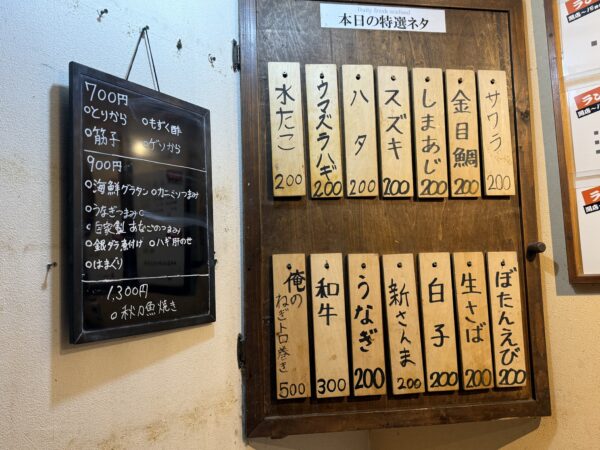 700円
○とりから ○もずく酢
○筋子 ○ゲソから
900円
○海鮮グラタン ○カニミソつまみ
○うなぎつまみ
○自家製 あなごのつまみ
○銀ダラ煮付け ○ハギ肝のせ
○はまぐり
1,300円
○秋刀魚焼き
本日の特選ネタ
水たこ 200
ウマズラハギ 200
ハタ 200
スズキ 200
しまあじ 200
金目鯛 200
サワラ 200
俺のねぎトロ巻き 500
和牛 300
うなぎ 200
新さんま 200
白子 200
生さば 200
ぼたんえび 200